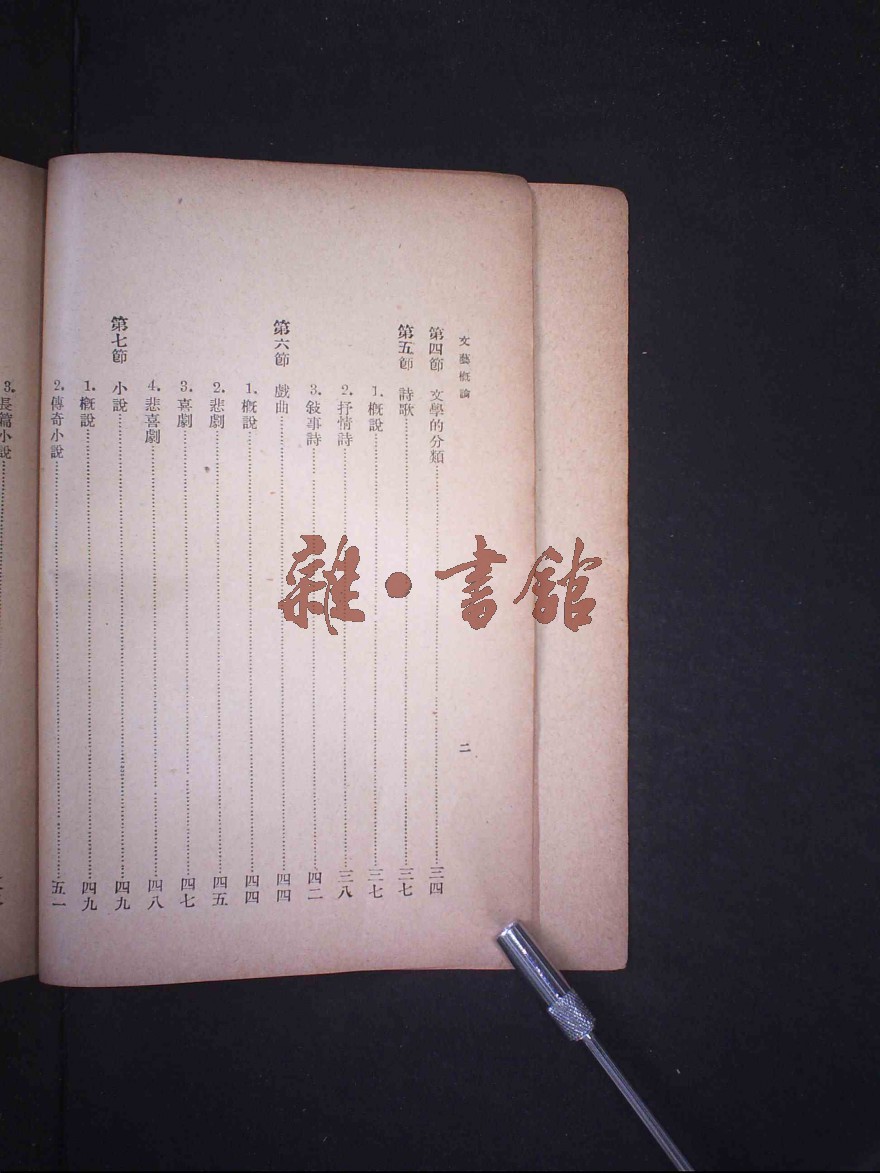 文藝概論
二
第四節 文學的分類……三四
第五節 詩歌……三七
1.概說……三七
2.抒情詩……三八
3.敍事詩……四二
第六節 戲曲……四四
1.概說……四四
2.悲劇……四五
3.喜劇……四七
4.悲喜劇……四八
第七節 小說……四九
1.概說……四九
2.傳奇小說……五一
3.長篇小說
雜·書館